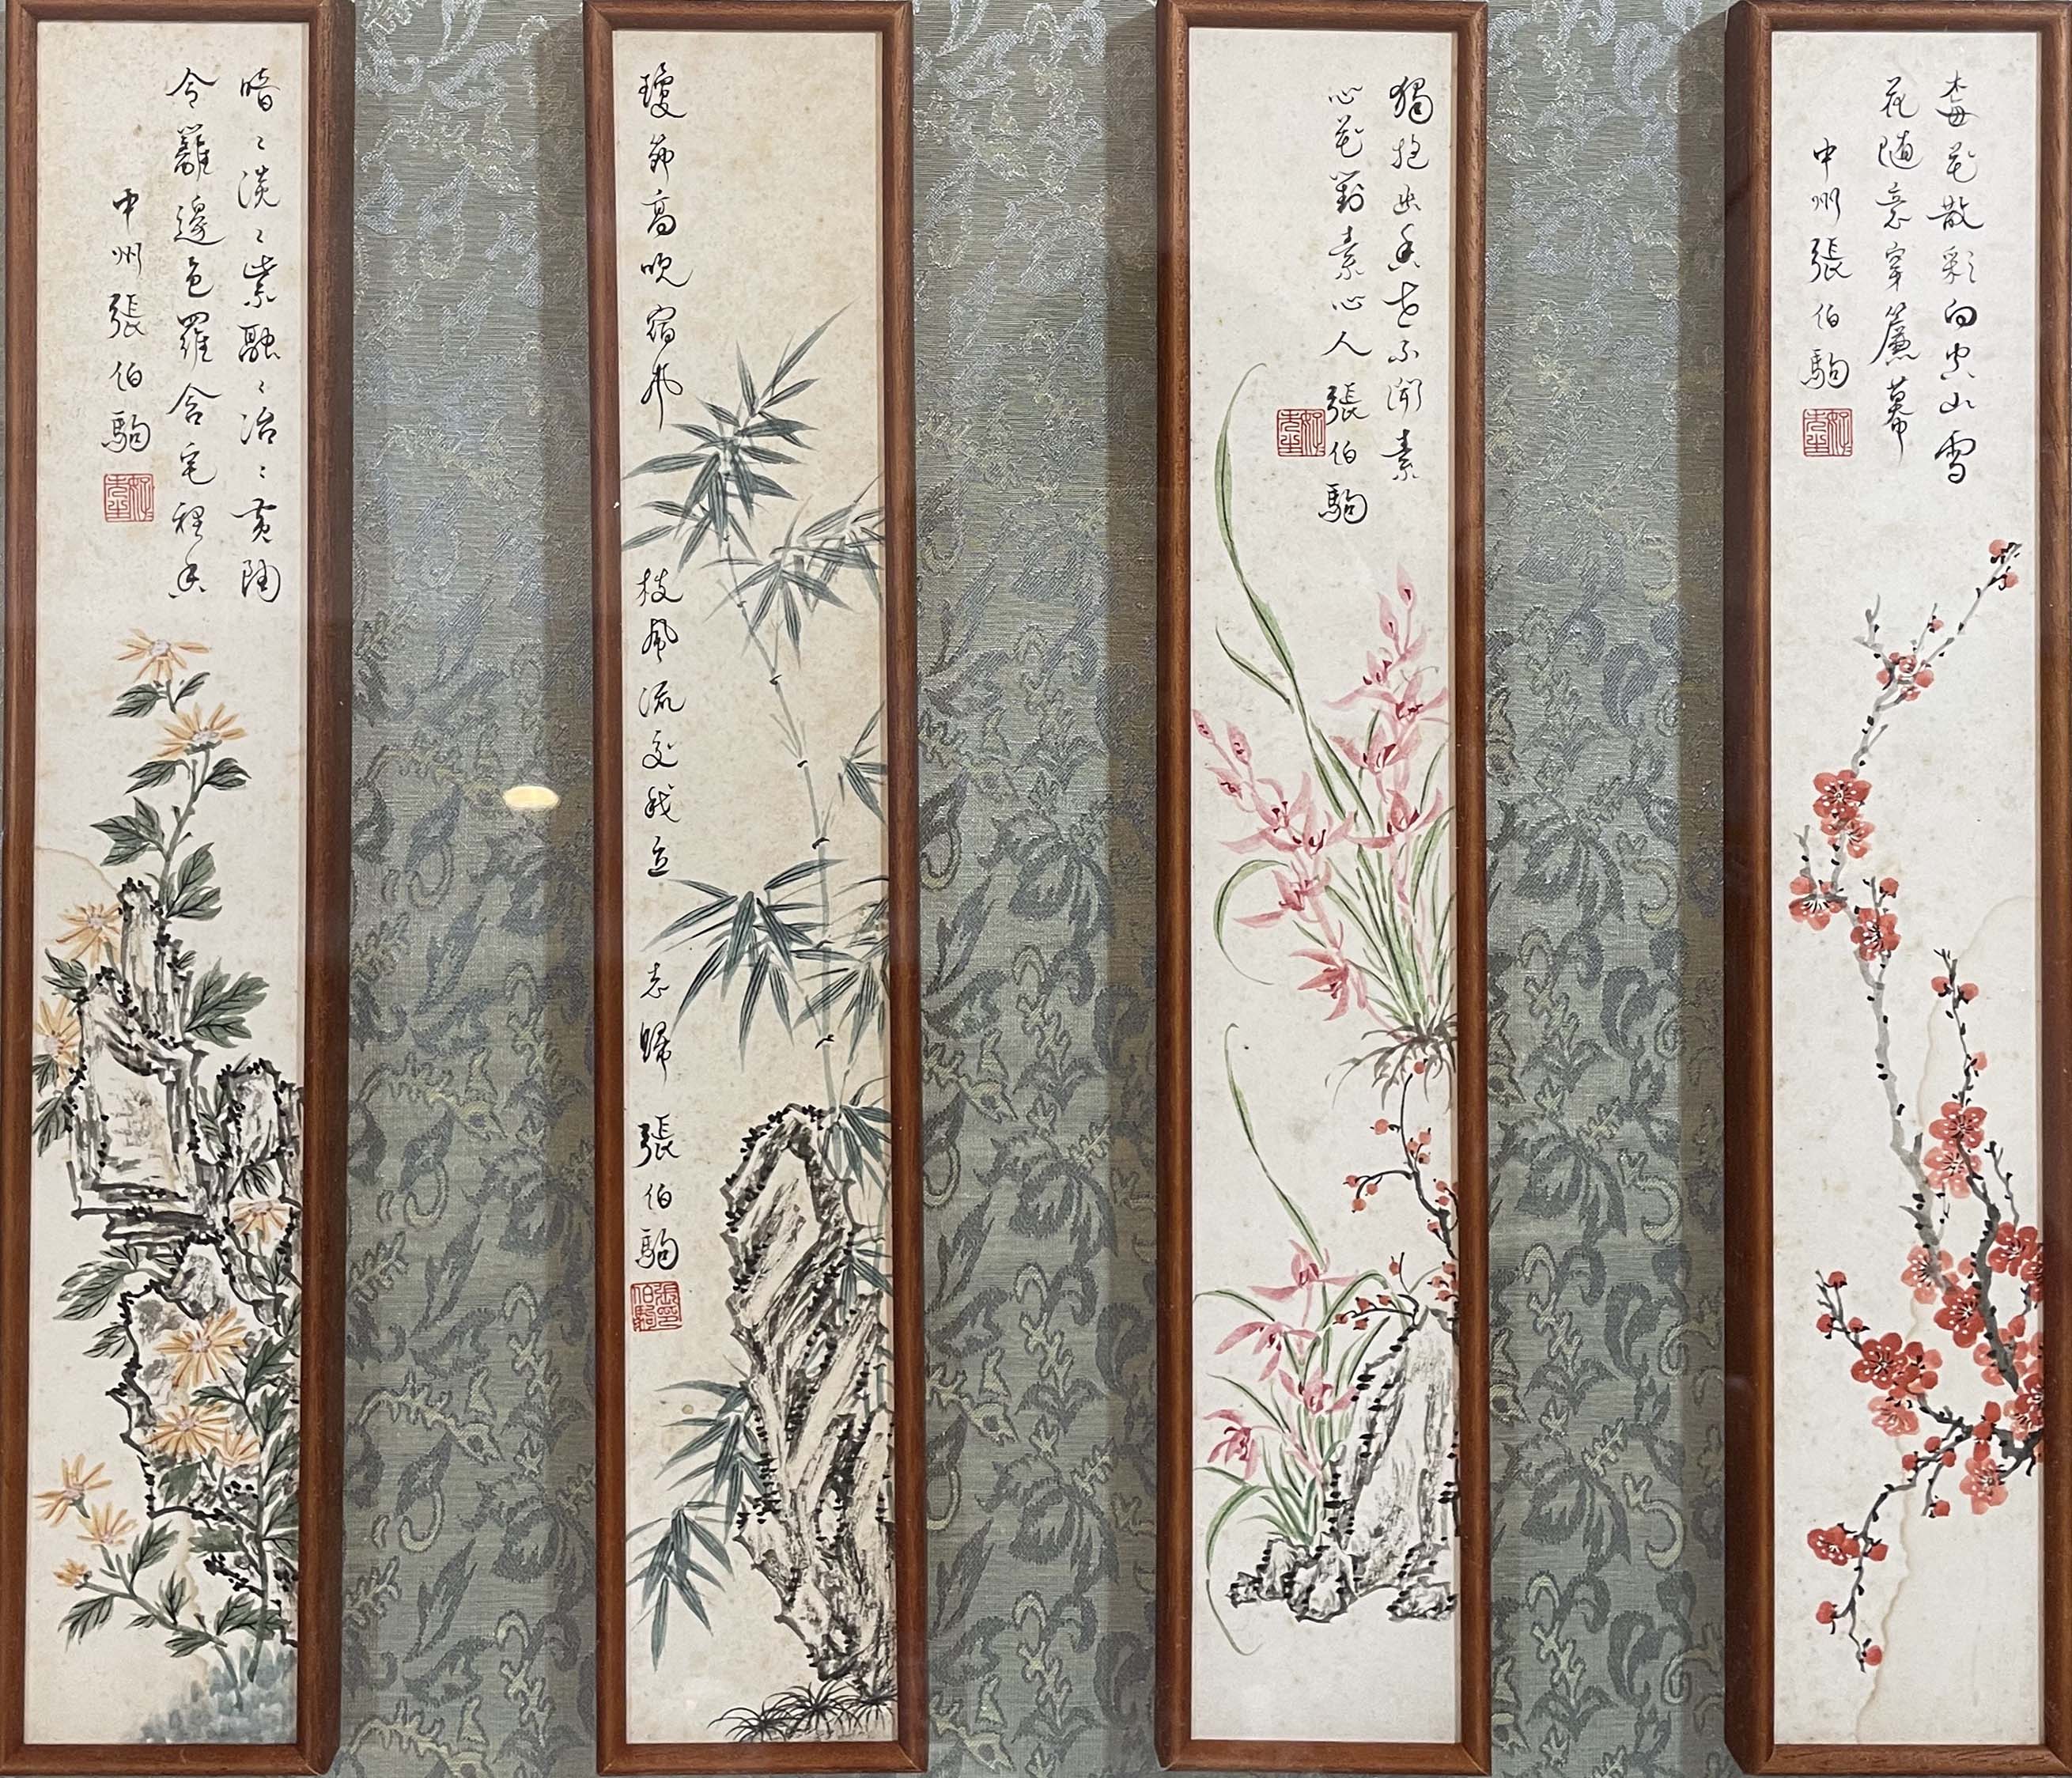 梅花散彩向空山雪
花随意穿簾幕
中州張伯駒
獨抱幽香世不聞素
心花對素心人 張伯駒
瓊節高吹宿鳳枝風流交我立忘歸 張伯駒
張印伯駒
暗〻淡〻紫融〻冶〻黄陶
令籬邊色羅含宅裡香
中州張伯駒